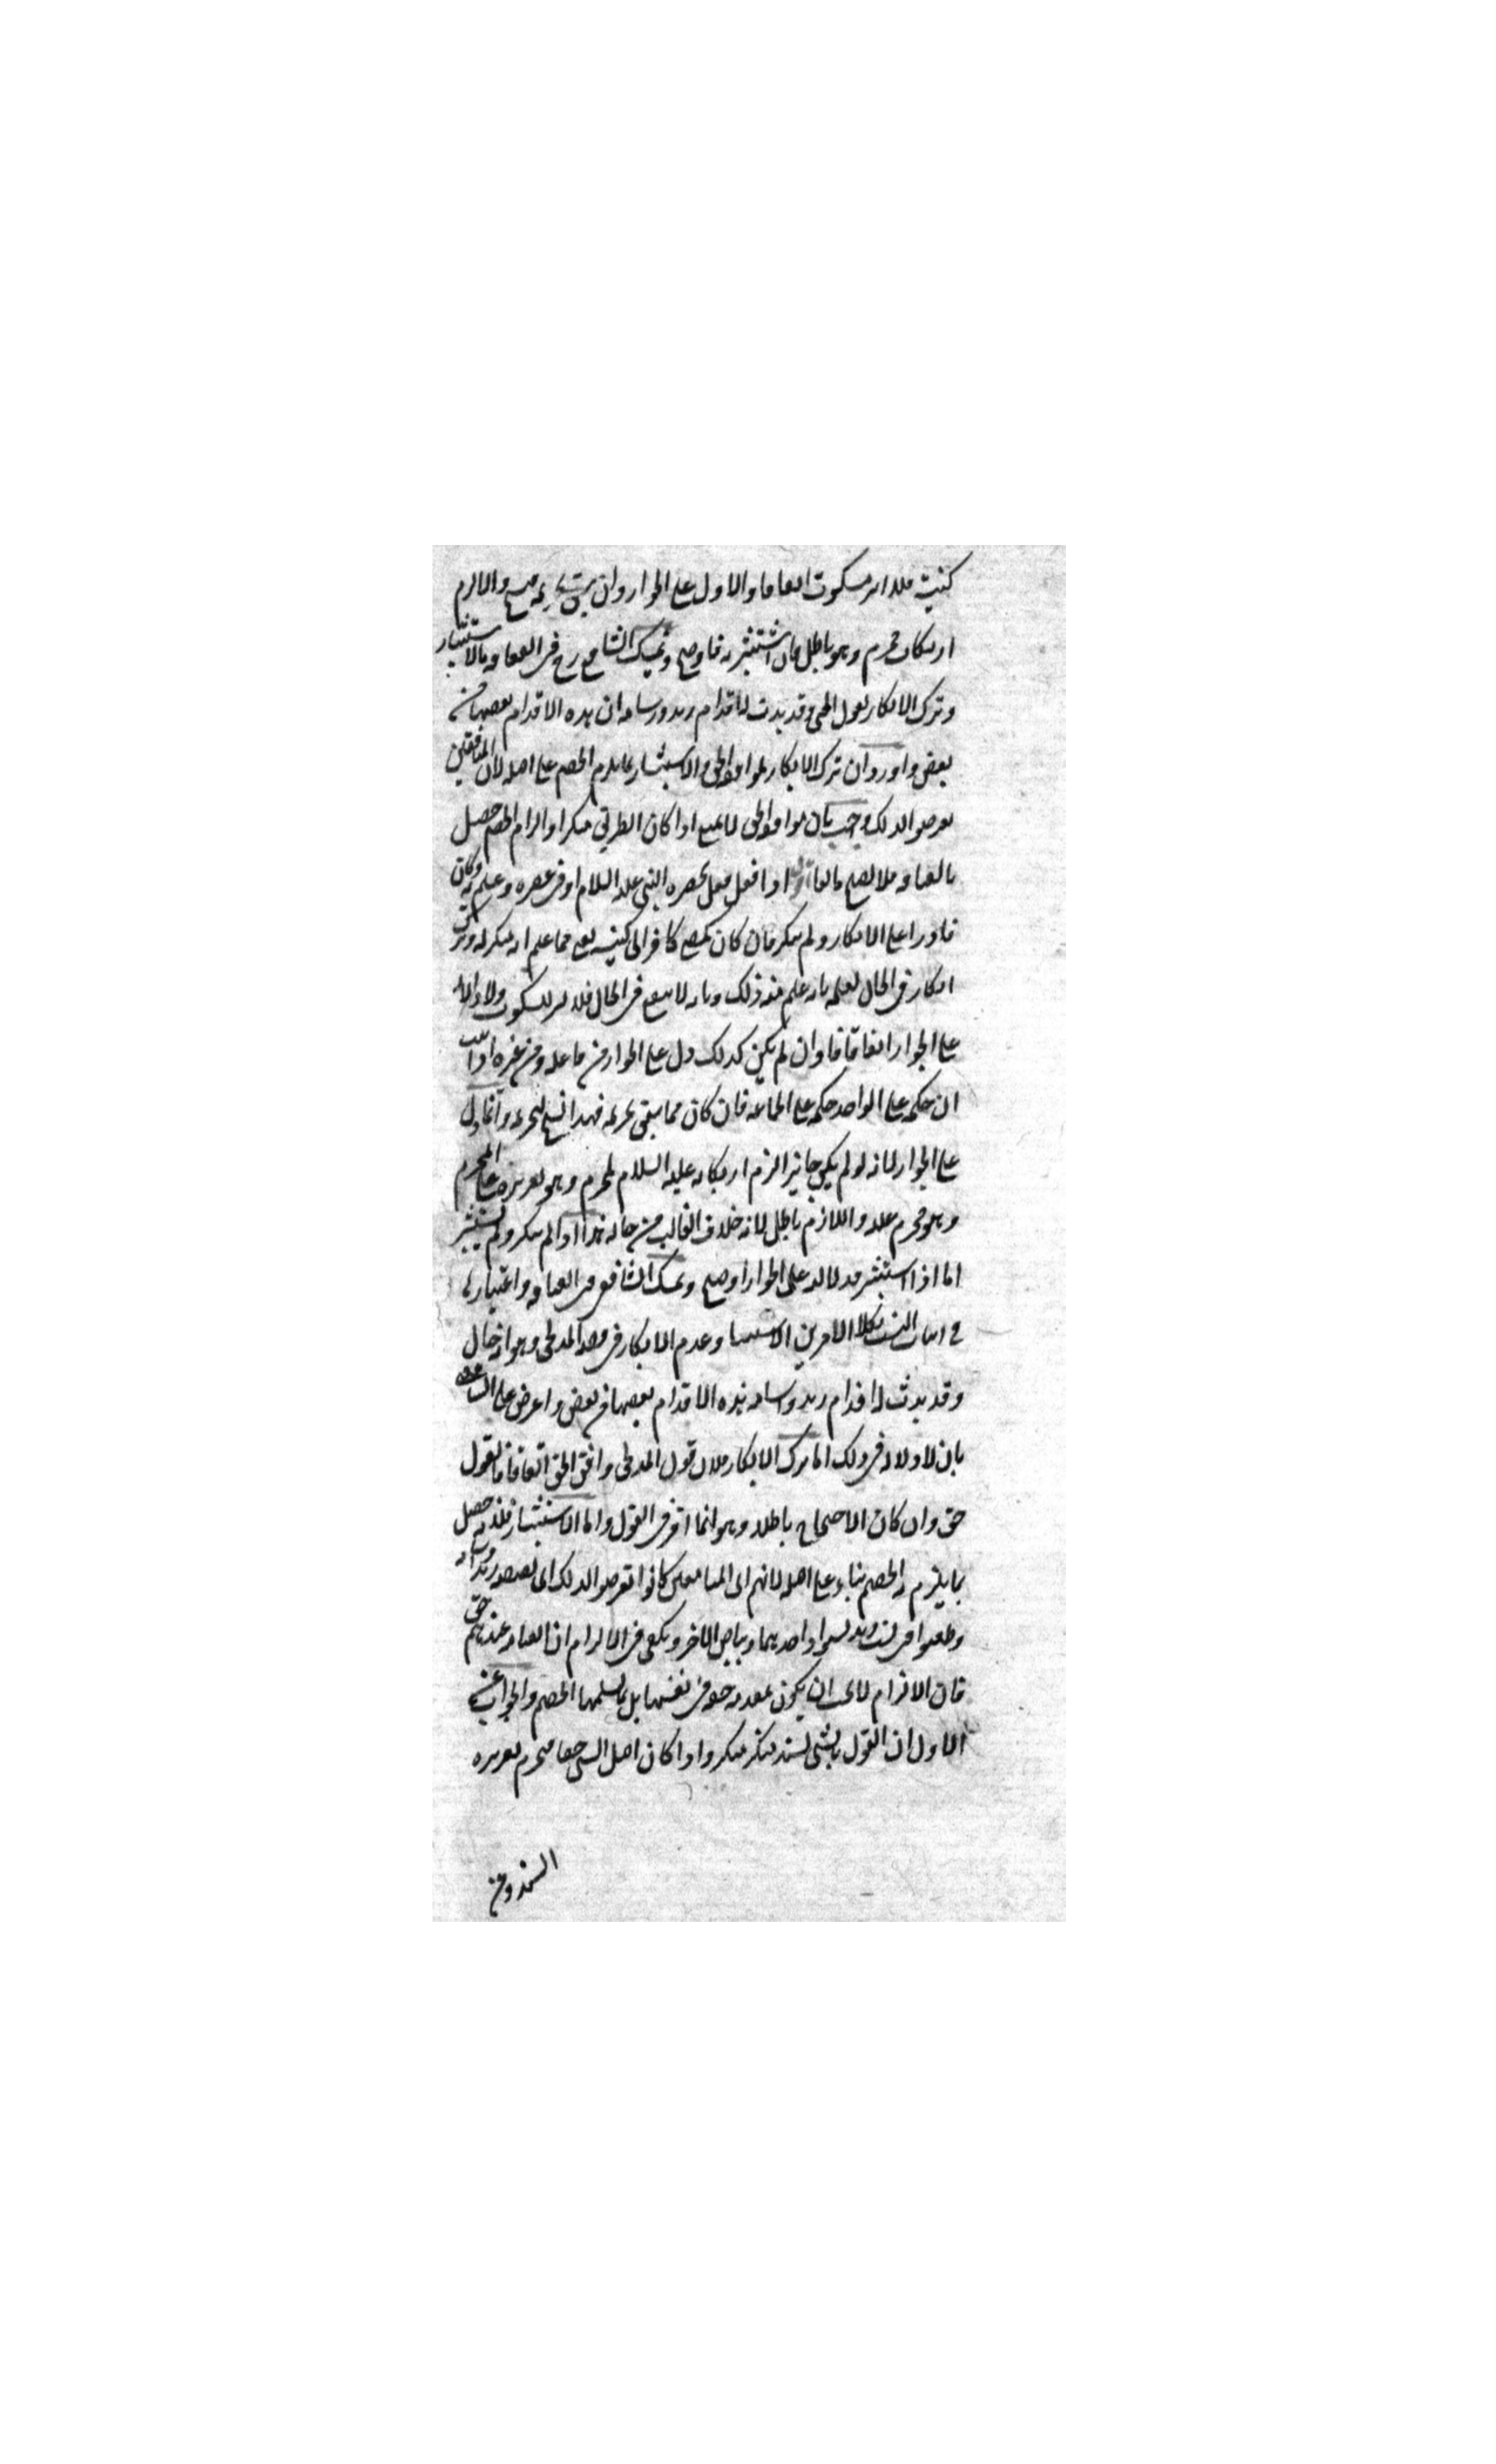 كنيسة فلا اثر للسكوت اتفاقا والا دل على الجواز وان سبق تحريمه فنسخ والا لزم
ارتكاب محرم وهو باطل فان استبشر به فاوضح وتمسك الشافعي رح في القيافة بالاستبشار
وترك الانكار لقول المدلجي وقد بدت له اقدام زيد واسامة ان هذه الاقدام بعضها من
بعض واورد ان ترك الانكار لموافقة الحق والاستبشار بما يلزم الخصم على اصله لان المنافقين
تعرضوا لذلك واجيب بان موافقة الحق لا تمنع اذا كان الطريق منكرا والزام الخصم حصل
بالقيافة فلا يصلح مانعا اقول اذا فعل فعل بحضرة النبي عليه السلام او في عصره وعلم به وكان
قادرا على الانكار ولم ينكر فان كان كمضي كافر الى كنيسة يعني مما علم انه منكر له وترك
انكاره في الحال لعلمه بانه علم منه ذلك وبانه لا ينفع في الحال فلا اثر للسكوت ولا دلالة
على الجواز اتفاقا وان لم يكن كذلك دل على الجواز من فاعله ومن غيره اذا ثبت
ان حكمه على الواحد حكمه على الجماعة فان كان مما سبق تحريمه فهذا نسخ لتحريمه وانما دل
على الجواز لانه لو لم يكن جائزا لزم ارتكابه عليه السلام لمحرم وهو تقريره على المحرم
وهو محرم عليه واللازم باطل لانه خلاف الغالب من حاله هذا اذا لم ينكر ولم يستبشر
اما اذا استبشر فدلالته على الجواز اوضح وتمسك الشافعي في القيافة واعتبارها
في اثبات النسب بكلا الامرين الاستبشار وعدم الانكار في قصة المدلجي وهو انه قال
وقد بدت له اقدام زيد واسامة هذه الاقدام بعضها من بعض واعترض على الشافعي
بان لا دلالة في ذلك اما ترك الانكار فلان قول المدلجي وافق الحق اتفاقا فالقول
حق وان كان الاحتجاج باطلا وهو انما اقر في القول واما الاستبشار فلانه حصل
بما يلزم به الخصم بناء على اصله لانهم اي المنافقين كانوا تعرضوا لذلك اي لقصة زيد واسامة
وطعنوا في نسب زيد لسواد احدهما وبياض الاخر ويكفي في الالزام ان القيافة عندهم حق
فان الالزام لا يجب ان يكون بمقدمة حقة في نفسها بل بما يسلمها الخصم والجواب عن
الاول ان القول بالشي لسند منكر منكر واذا كان اصل الشي حقا فيحرم تقريره
السند ومن